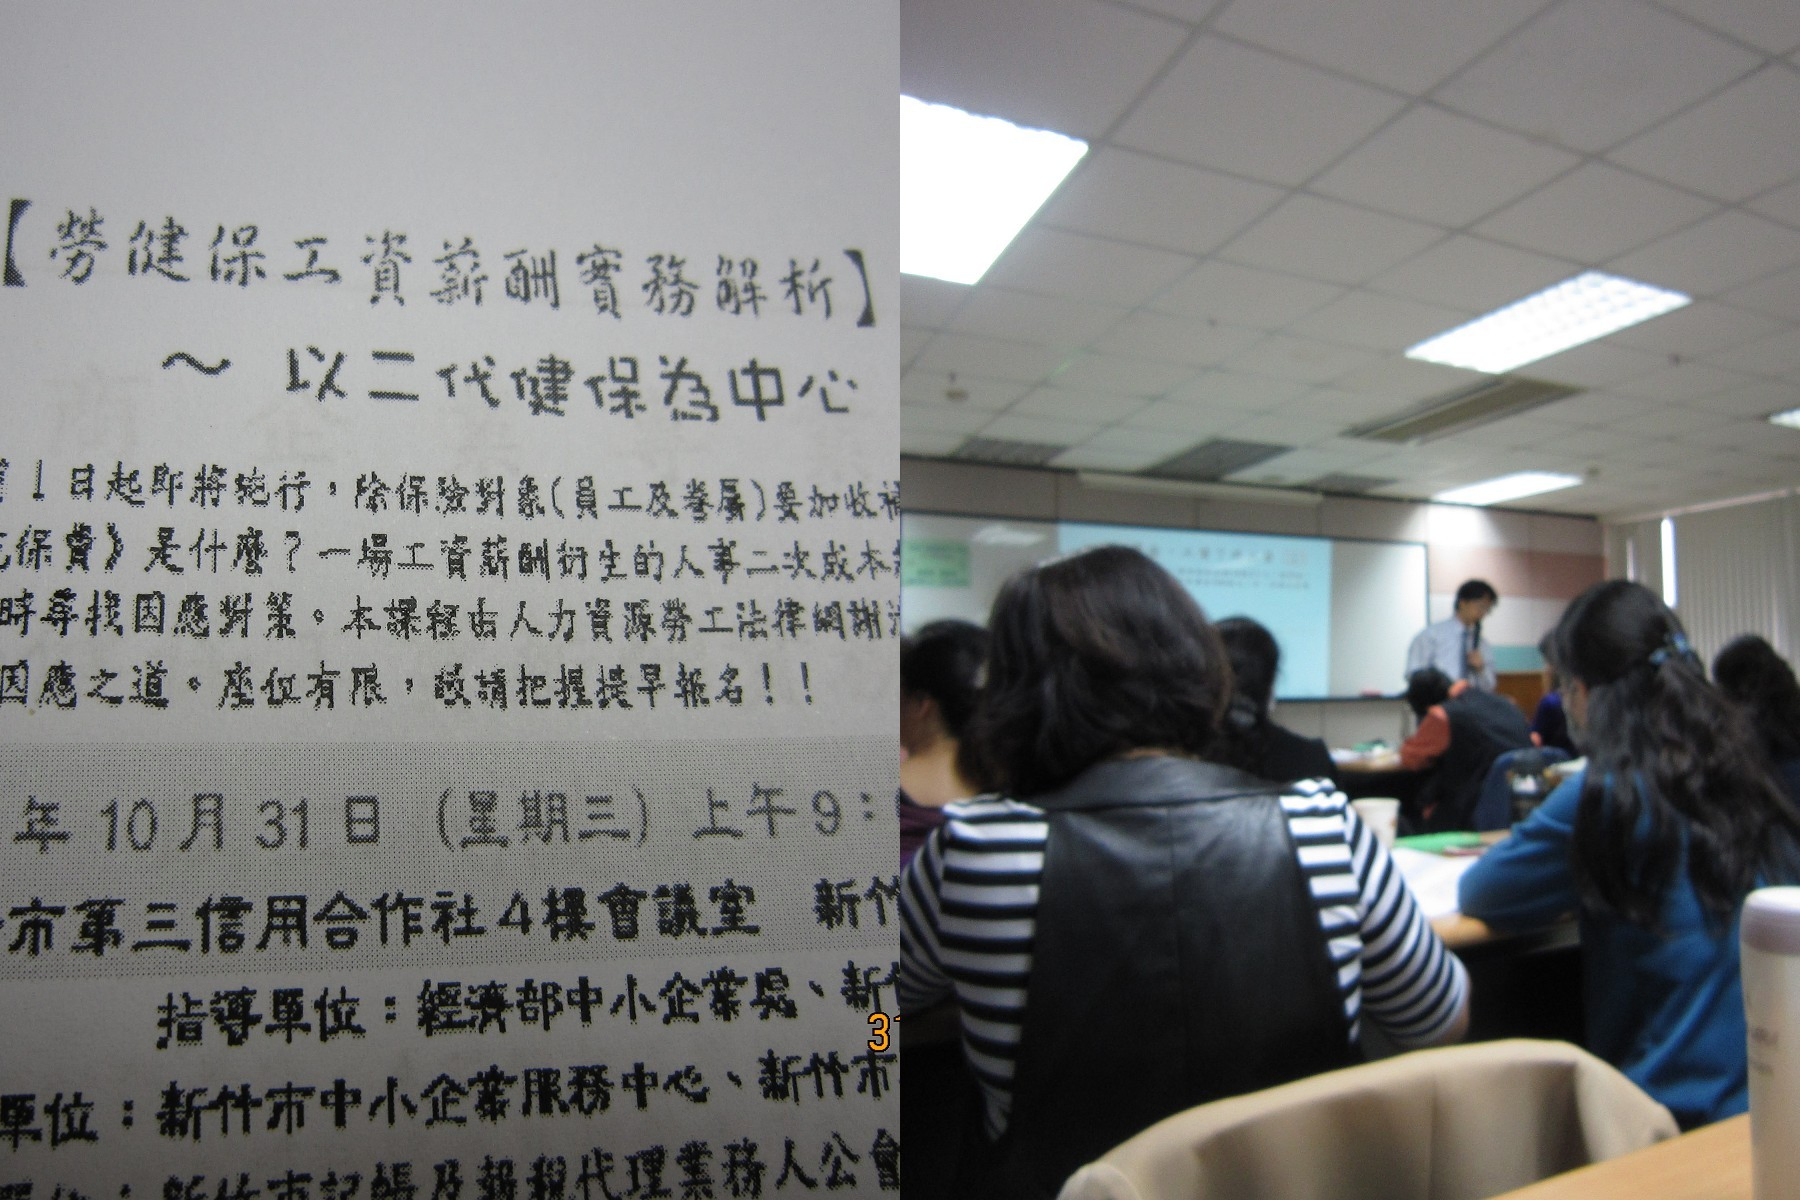 【勞健保工資薪酬實務解析】
～ 以二代健保為中心
1日起即將施行，除保險對象(員工及眷屬)要加收補
保費》是什麼？一場工資薪酬衍生的人事二次成本
時尋找因應對策。本課程由人力資源勞工法律網謝
因應之道。座位有限，敬請把握提早報名！！
年 10 月 31 日 （星期三） 上午 9：
市第三信用合作社4樓會議室 新竹
指導單位：經濟部中小企業處、新竹
單位：新竹市中小企業服務中心、新竹市
單位：新竹市記帳及報稅代理業務人公會
31